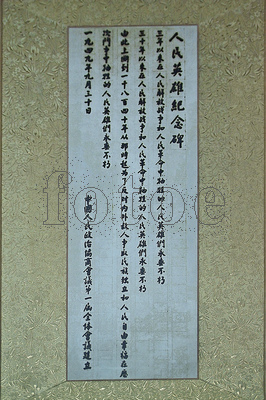 人民英雄紀念碑
三年以來在人民解放战争和人民革命中牺牲的人民英雄們永垂不朽
三十年以來在人民解放战争和人民革命中牺牲的人民英雄們永垂不朽
由此上溯到一千八百四十年從那時起為了反对内外敌人争取民族独立和人民自由幸福在歷
次鬥争中牺牲的人民英雄們永垂不朽
一九四九年九月三十日 中國人民政治協商會議第一届全体會議建立
fotoe